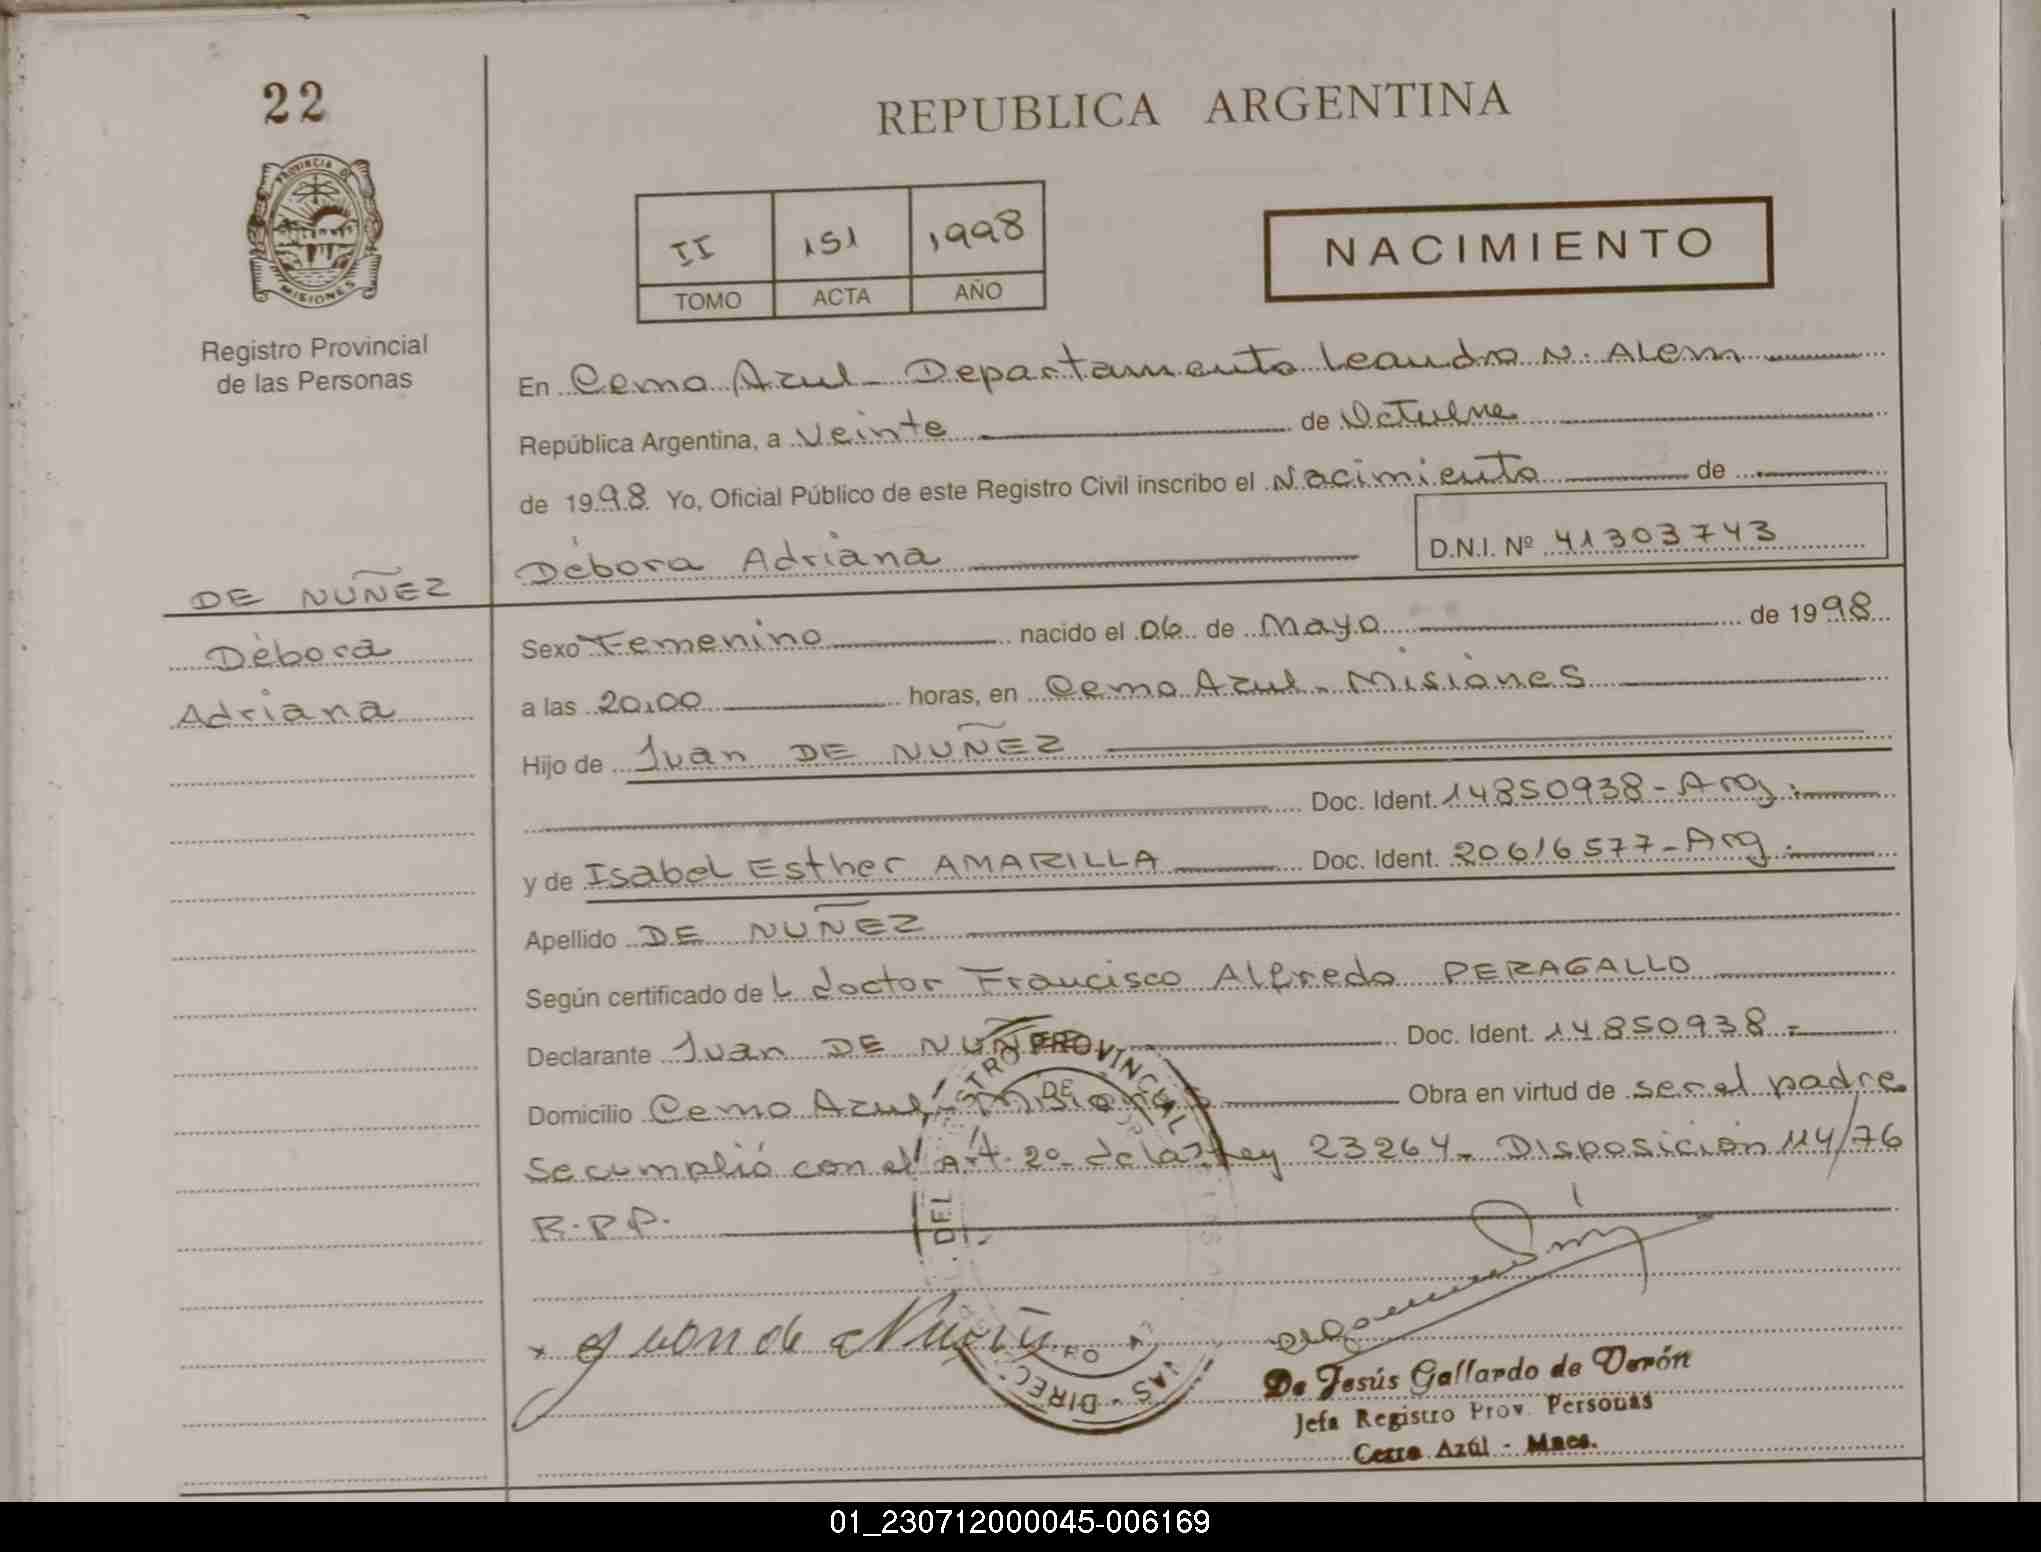 22
PROVINCIA DE
MISIONES
Registro Provincial
de las Personas
REPUBLICA ARGENTINA
II 151 1998
TOMO ACTA AÑO
NACIMIENTO
En Cerro Azul - Departamento Leandro N. Alem
República Argentina, a Veinte de Octubre
de 1998 Yo, Oficial Público de este Registro Civil inscribo el Nacimiento de
Débora Adriana D.N.I. Nº 41303743
DE NUÑEZ
Débora
Adriana
Sexo Femenino nacido el 06 de Mayo de 1998
a las 20,00 horas, en Cerro Azul - Misiones
Hijo de Juan DE NUÑEZ
Doc. Ident. 14850938 - Arg.
y de Isabel Esther AMARILLA Doc. Ident. 20616577 - Arg.
Apellido DE NUÑEZ
Según certificado de L doctor Francisco Alfredo PERAGALLO
Declarante Juan DE NUÑEZ Doc. Ident. 14850938 -
Domicilio Cerro Azul - Misiones Obra en virtud de ser el padre
Se cumplió con el Art. 2º de la Ley 23264 - Disposición 114/76
R.P.P.
De Jesús Gallardo de Verón
Jefa Registro Prov. Personas
Cerro Azúl - Mnes.
01_230712000045-006169